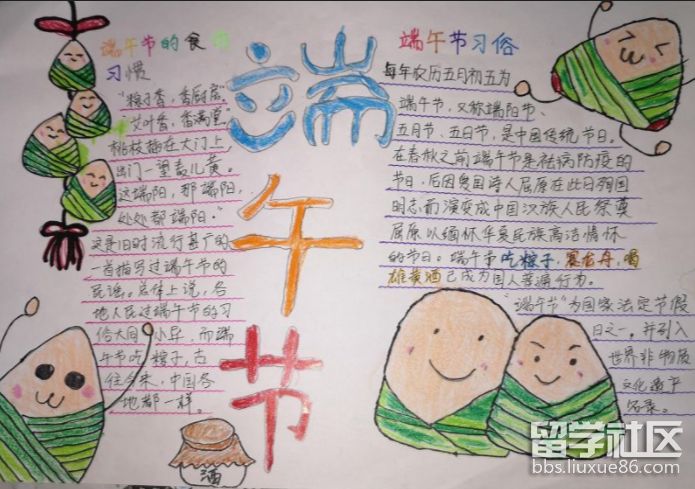 端午节的食节
习惯
"粽子香，香厨房。
"艾叶香，香满堂。
桃枝插在大门上，
出门一望麦儿黄。
这端阳，那端阳，
处处都端阳。"
这是旧时流行甚广的
一首描写过端午节的
民谣。总体上说，各
地人民过端午节的习
俗大同小异，而端
午节吃粽子，古
往今来，中国各
地都一样。
端
午
节
端午节习俗
每年农历五月初五为
端午节，又称端阳节、
五月节、五日节，是中国传统节日。
在春秋之前端午节是祛病防疫的
节日，后因爱国诗人屈原在此日殉国
明志而演变成中国汉族人民祭奠
屈原以缅怀华夏民族高洁情怀
的节日。端午节吃粽子，赛龙舟，喝
雄黄酒已成为国人普遍行为。
"端午节"为国家法定节假
日之一，并列入
世界非物质
文化遗产
名录。
酒
留学社区
bbs.liuxue86.com